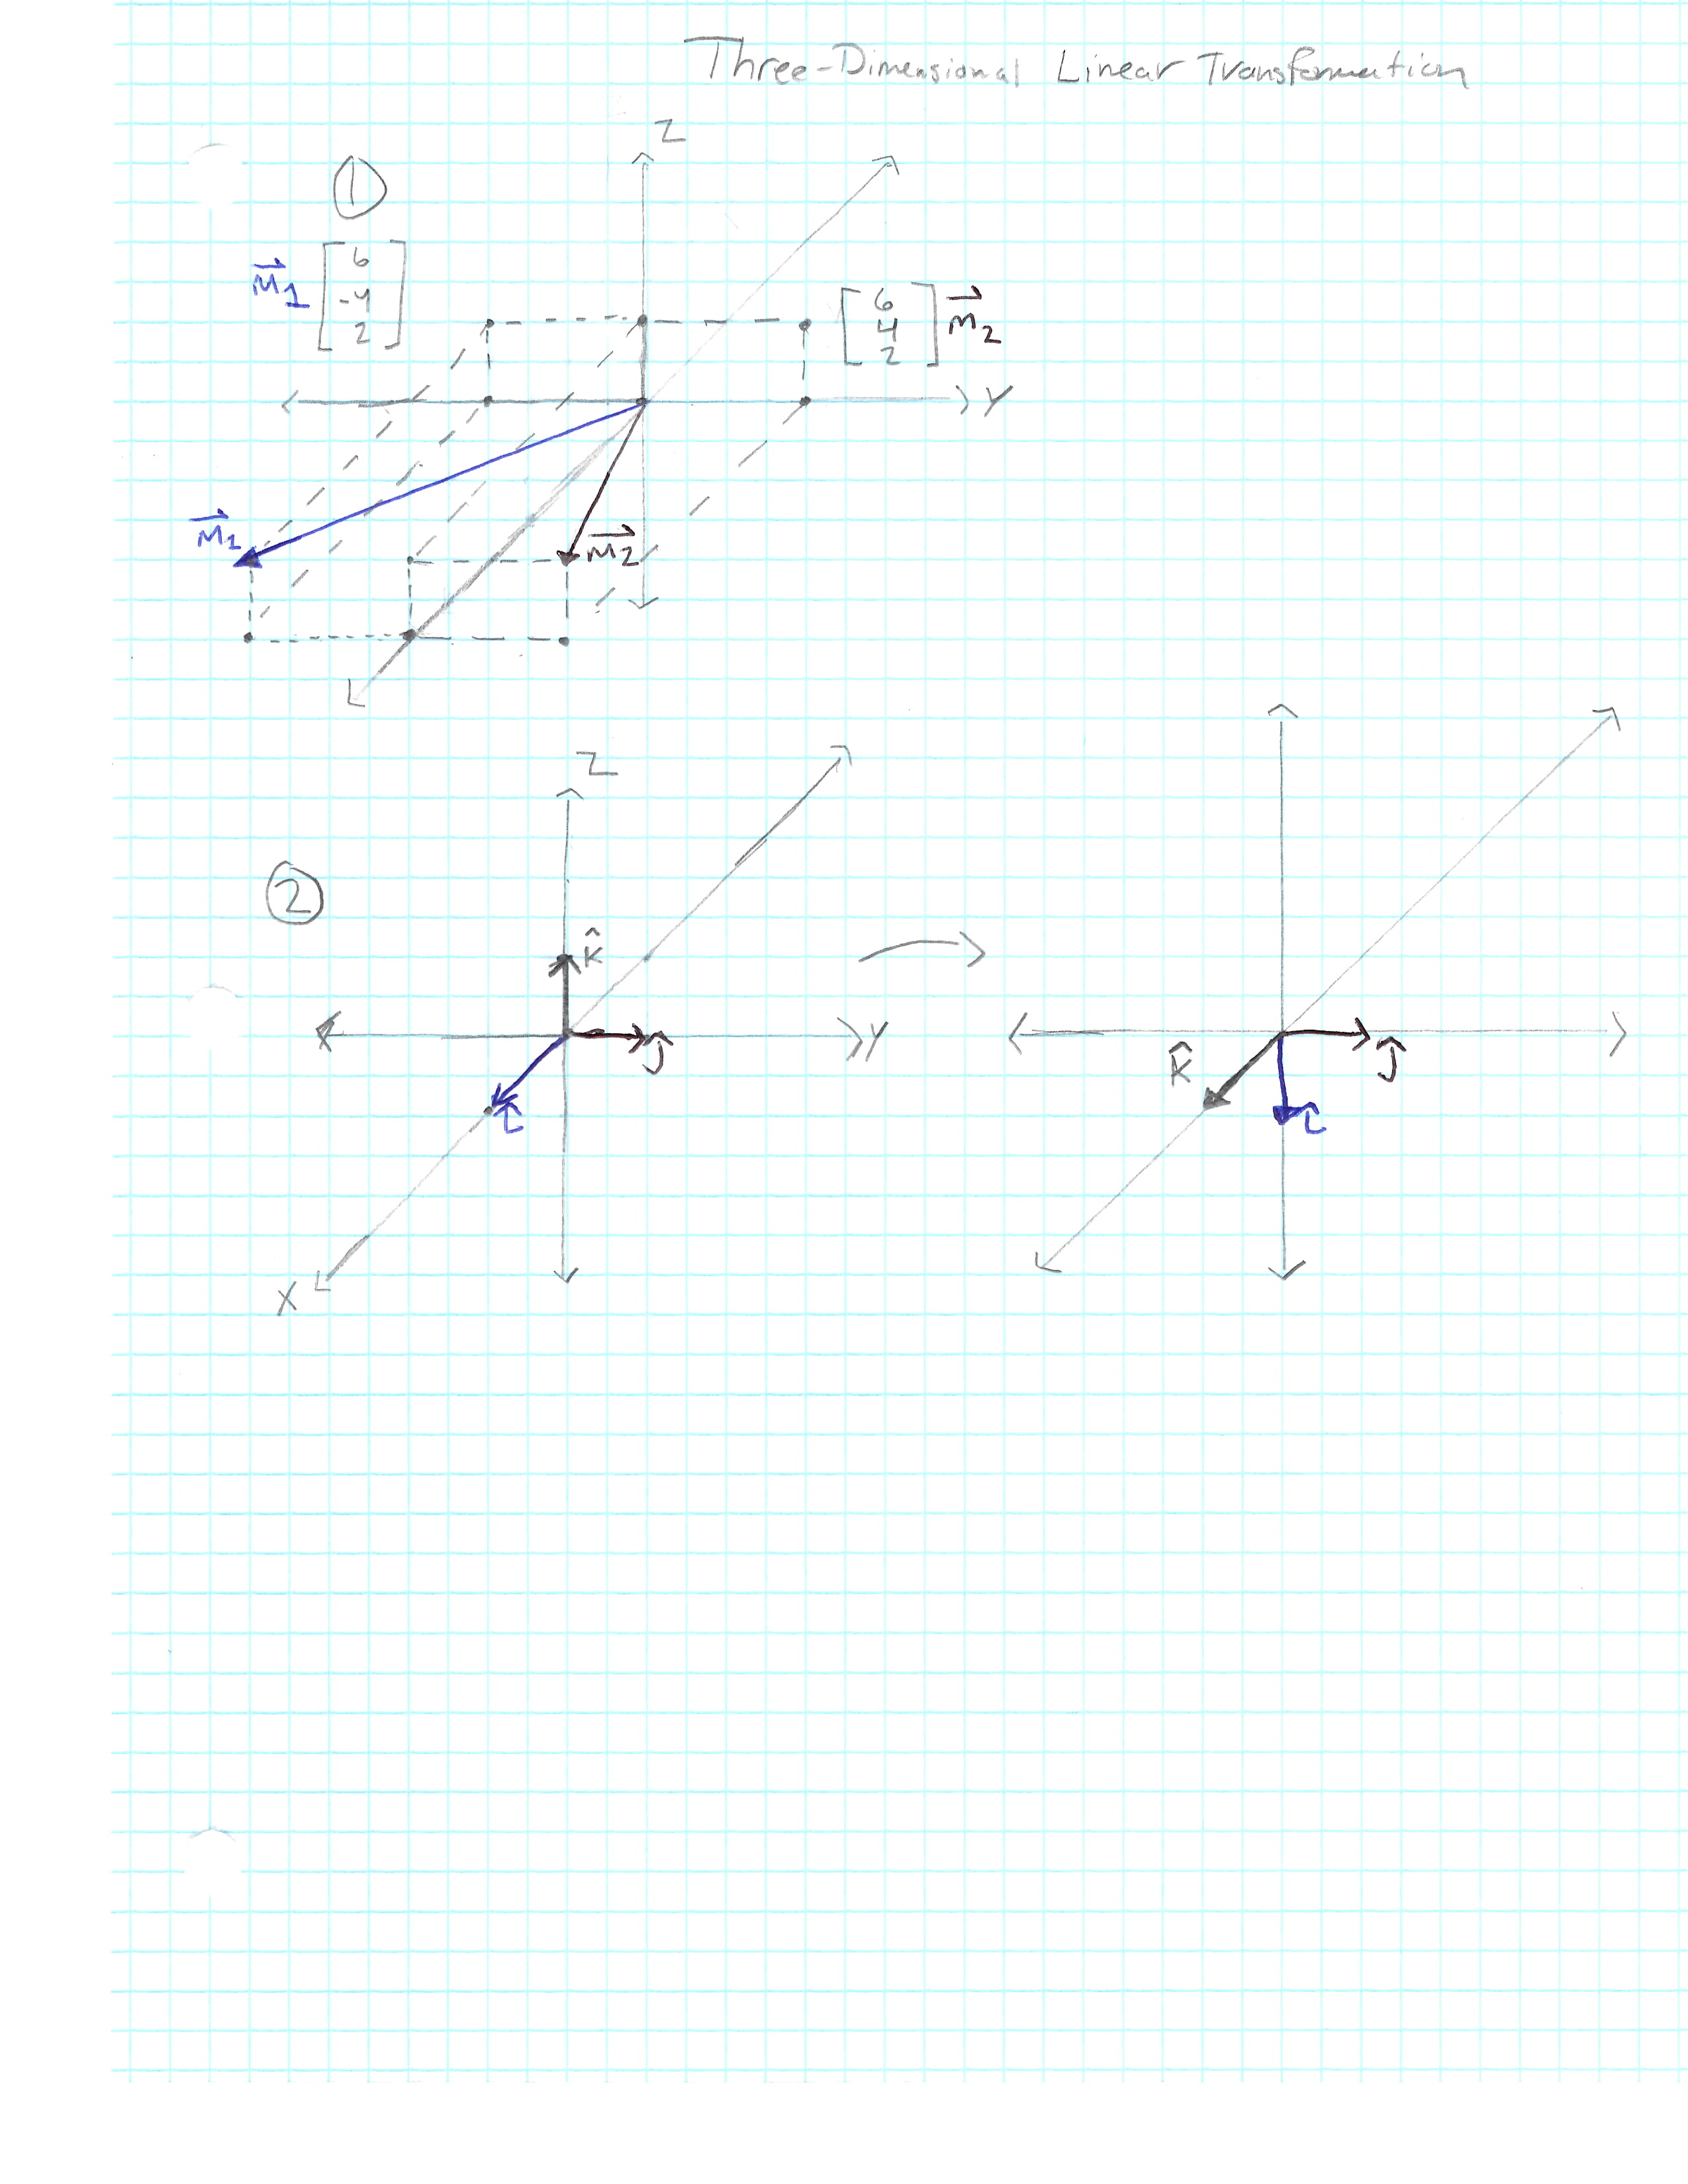 Three-Dimensional Linear Transformation
Z
①
M1 [ 6
-4
2 ]
[ 6
4
2 ] M2
Y
M1
M2
Z
②
K̂
Y
Ĵ
î
X
K̂
Ĵ
î